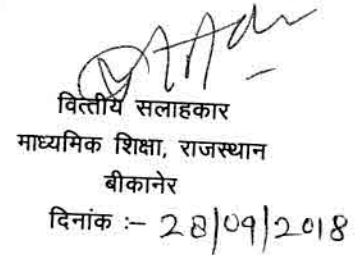 वित्तीय सलाहकार
माध्यमिक शिक्षा, राजस्थान
बीकानेर
दिनांक :– 28/09/2018